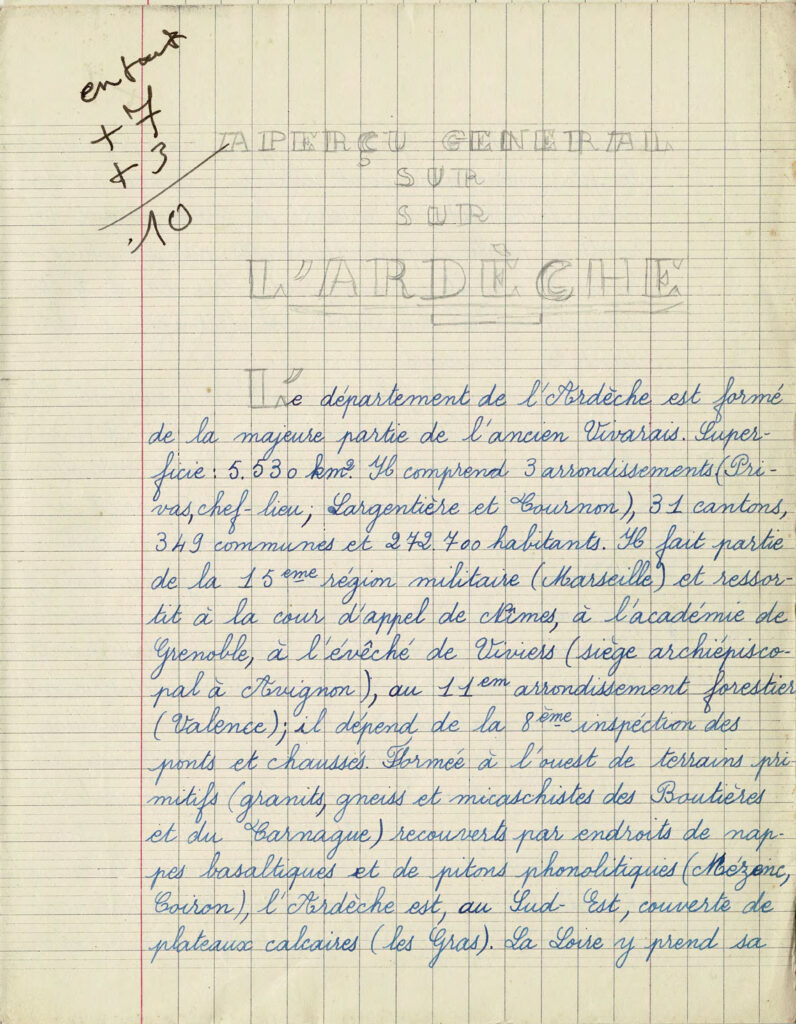 en tout
+ 7
+ 3
10
APERÇU GENERAL
SUR
SUR
L'ARDÈCHE
Le département de l'Ardèche est formé
de la majeure partie de l'ancien Vivarais. Super-
ficie : 5.530 km². Il comprend 3 arrondissements (Pri-
vas, chef-lieu ; Largentière et Tournon), 31 cantons,
349 communes et 272.700 habitants. Il fait partie
de la 15eme région militaire (Marseille) et ressor-
tit à la cour d'appel de Nîmes, à l'académie de
Grenoble, à l'évêché de Viviers (siège archiépisco-
pal à Avignon), au 11em arrondissement forestier
(Valence) ; il dépend de la 8ème inspéction des
ponts et chaussés. Forméé à l'ouest de terrains pri
mitifs (granits, gneiss et micaschistes des Boutières
et du Tarnague) recouverts par endroits de nap-
pes basaltiques et de pitons phonolitiques (Mézenc,
Coiron), l'Ardèche est, au Sud-Est, couverte de
plateaux calcaires (les Gras). La Loire y prend sa